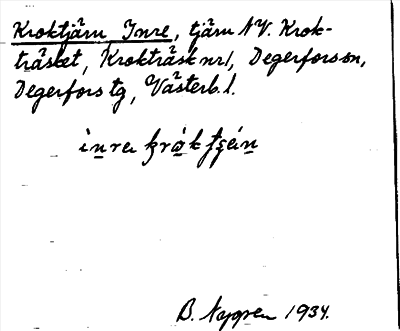 Kroktjärn Inre, tjärn N V. Krok-
träsket, Kroktrāsk nr 1, Degerfors sn,
Degerfors tg, Västerb. l.
B. Nygren 1934.